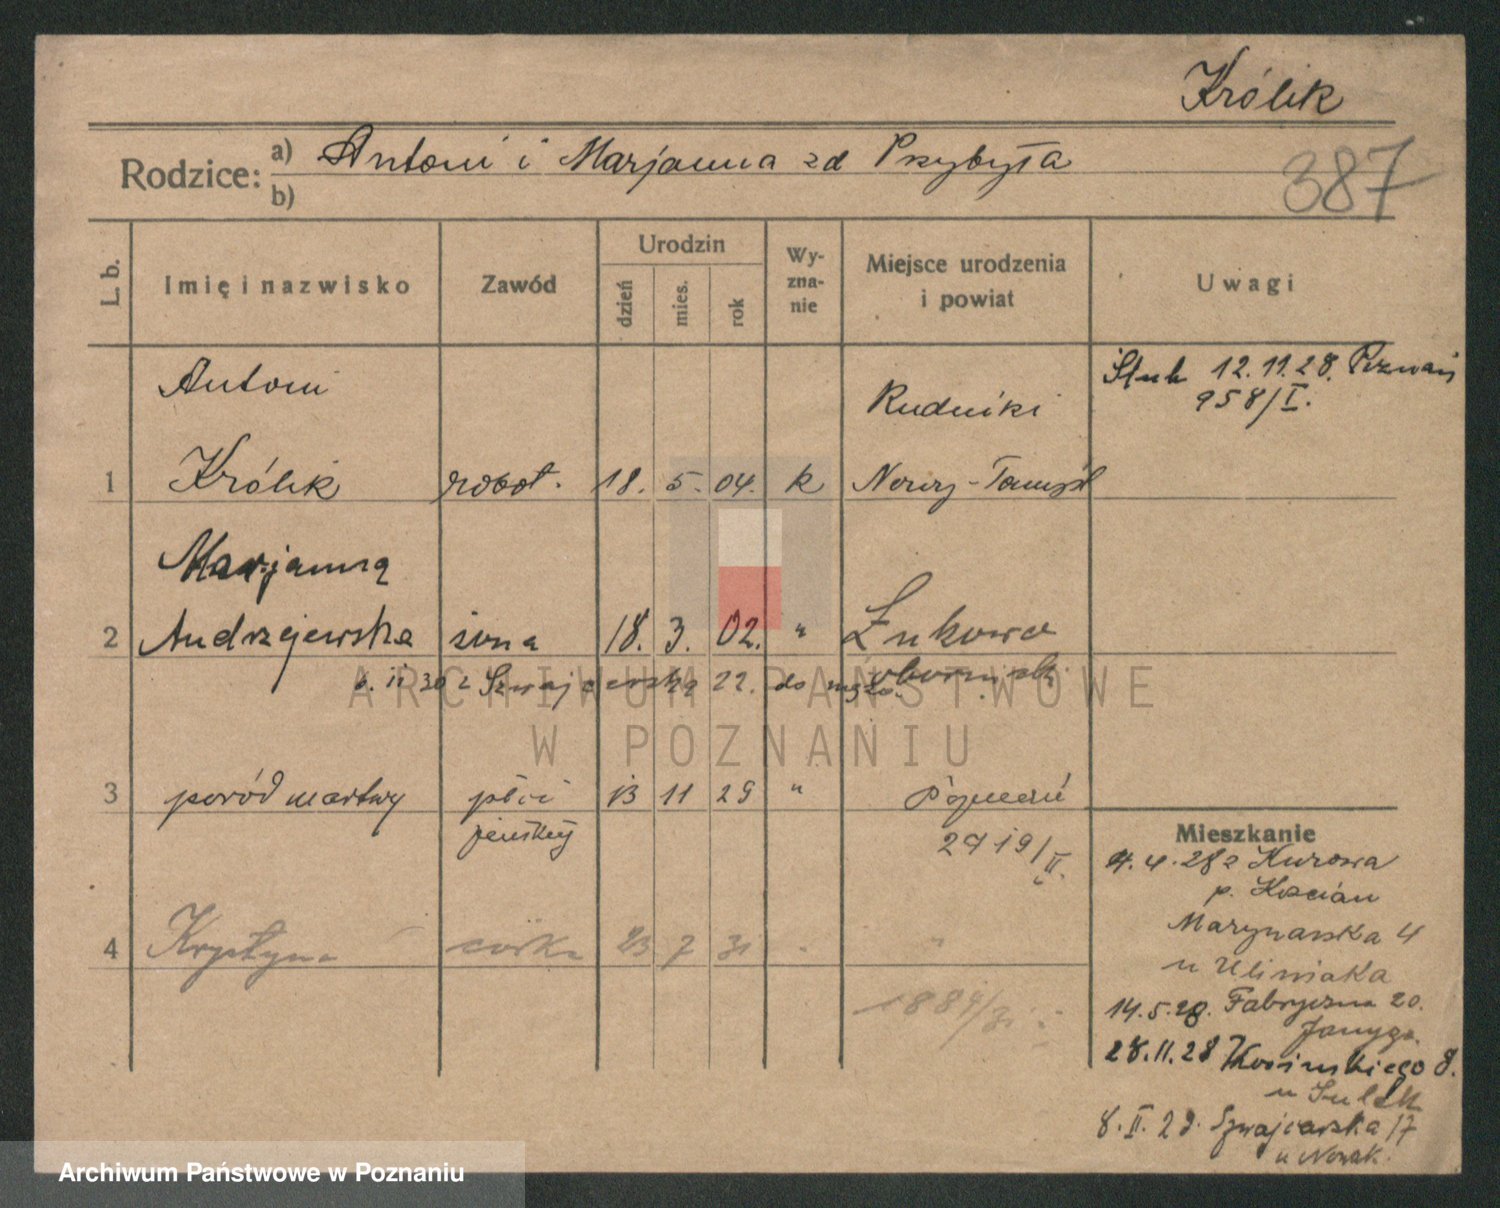 Królik
Rodzice: a) Antoni i Marjanna zd Przybyła
b)
387
L. b.
Imię i nazwisko
Zawód
Urodzin
dzień
mies.
rok
Wy-
zna-
nie
Miejsce urodzenia
i powiat
Uwagi
Antoni
Rudniki
Ślub 12.11.28. Poznań
958/I.
1 Królik robot. 18. 5. 04. k Nowy-Tomyśl
Marjanna
2 Andrzejewska żona 18. 3. 02. " Żukowo
6. II 30 z Szwajcarska 22. do męża. obornicki
ARCHIWUM PAŃSTWOWE
W POZNANIU
3 poród martwy płci 13 11 29 " Poznań
żeńskiej
2919/II.
Mieszkanie
4.4.28 z Kurowa
p. Kościan
Marynarska 4
u Uliniaka
4 Krystyna córka 23 7 31 " "
1884/31
14.5.28. Fabryczna 20.
28.11.28 Kosińskiego 8.
u
8.II.29. Szwajcarska 17
u Nowak.
Archiwum Państwowe w Poznaniu